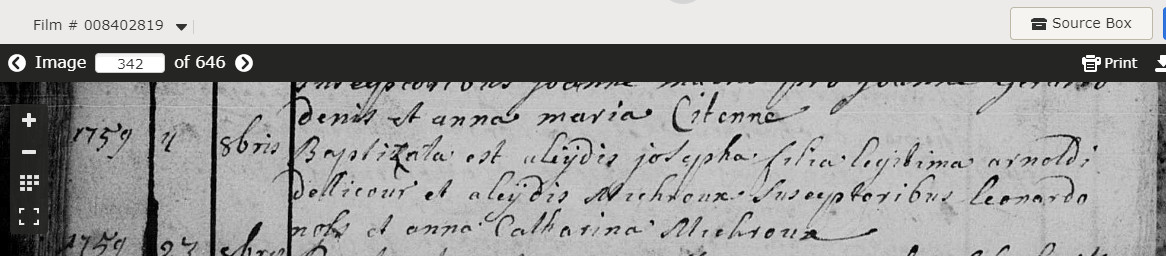 Film # 008402819
Source Box
Image 342 of 646
Print
Susceptoribus joanne
denis et anna maria Citenne
1759 4 8bris Baptizata est aleijdis josepha filia legitima arnoldi
dellicour et aleijdis Michroux Susceptoribus leonardo
nols et anna Catharina Michroux
1759 23 8bris